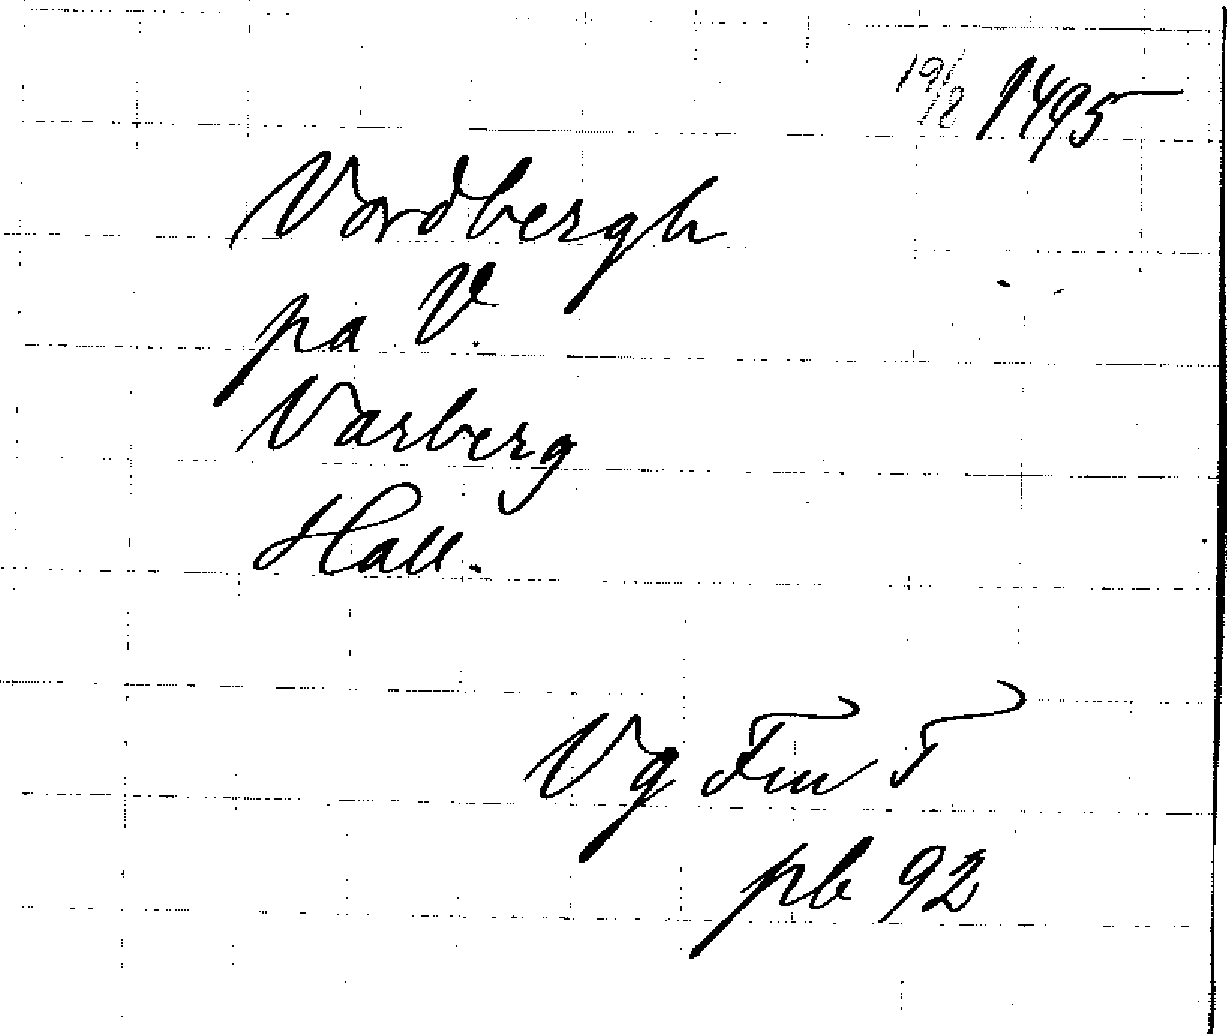 19/12 1495
Vardbergh
pa V.
Varberg
Hall.
Vg Fm T
pb 92